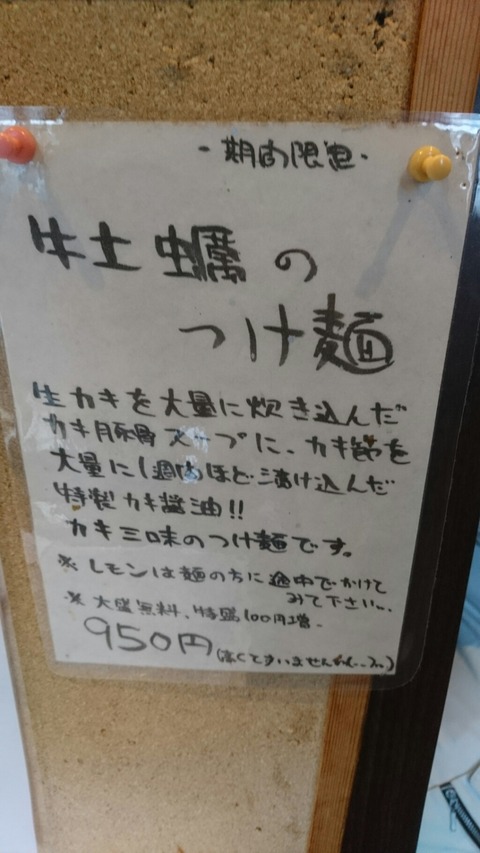 -期間限定-
牡蠣の
つけ麺
生カキを大量に炊き込んだ
カキ豚骨スープに、カキ節を
大量に1週間ほど漬け込んだ
特製カキ醤油!!
カキ三味のつけ麺です。
※レモンは麺の方に途中でかけて
みて下さい。
※大盛無料、特盛100円増。
950円(高くてすいませんが(..))